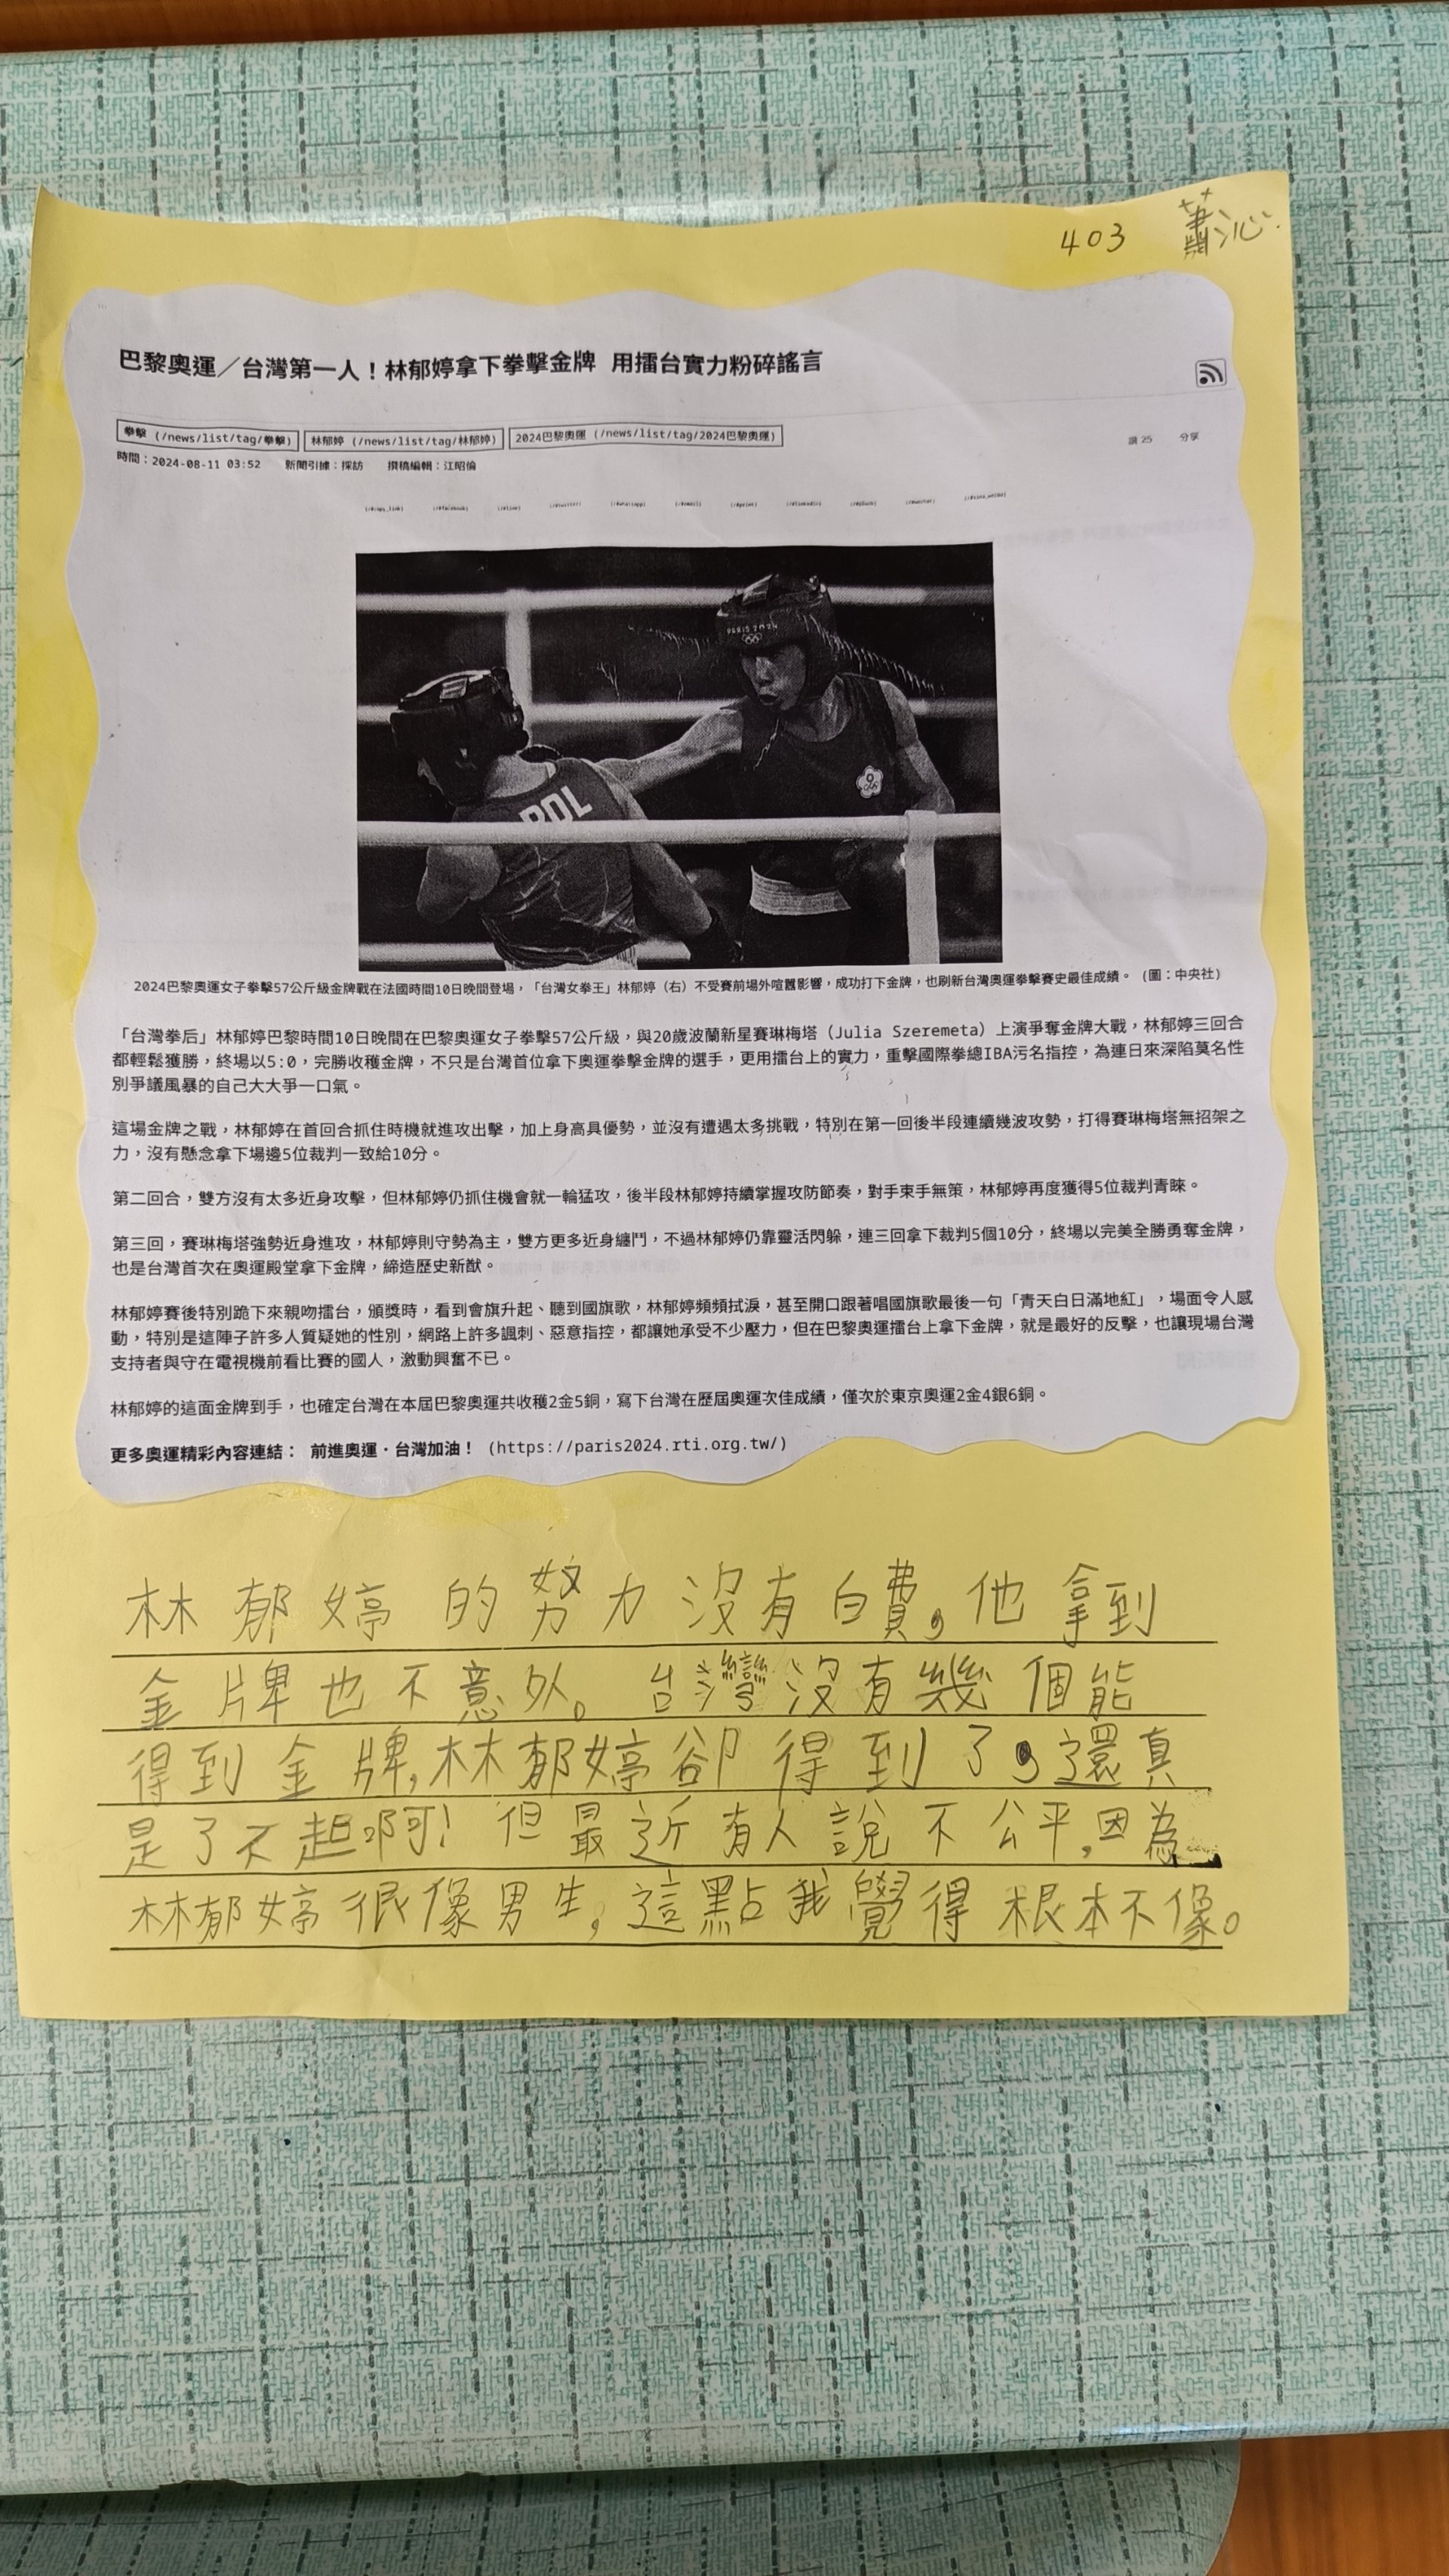 403 蕭沁
巴黎奧運／台灣第一人！林郁婷拿下拳擊金牌 用擂台實力粉碎謠言
拳擊 (/news/list/tag/拳擊) 林郁婷 (/news/list/tag/林郁婷) 2024巴黎奧運 (/news/list/tag/2024巴黎奧運)
讚 25 分享
時間：2024-08-11 03:52 新聞引據：採訪 撰稿編輯：江昭倫
(/#copy_link) (/#facebook) (/#line) (/#twitter) (/#whatsapp) (/#email) (/#print) (/#linkedin) (/#plurk) (/#wechat) (/#sina_weibo)
PARIS 2024
POL
2024巴黎奧運女子拳擊57公斤級金牌戰在法國時間10日晚間登場，「台灣女拳王」林郁婷（右）不受賽前場外喧囂影響，成功打下金牌，也刷新台灣奧運拳擊賽史最佳成績。 (圖：中央社)
「台灣拳后」林郁婷巴黎時間10日晚間在巴黎奧運女子拳擊57公斤級，與20歲波蘭新星賽琳梅塔（Julia Szeremeta）上演爭奪金牌大戰，林郁婷三回合
都輕鬆獲勝，終場以5:0，完勝收穫金牌，不只是台灣首位拿下奧運拳擊金牌的選手，更用擂台上的實力，重擊國際拳總IBA污名指控，為連日來深陷莫名性
別爭議風暴的自己大大爭一口氣。
這場金牌之戰，林郁婷在首回合抓住時機就進攻出擊，加上身高具優勢，並沒有遭遇太多挑戰，特別在第一回後半段連續幾波攻勢，打得賽琳梅塔無招架之
力，沒有懸念拿下場邊5位裁判一致給10分。
第二回合，雙方沒有太多近身攻擊，但林郁婷仍抓住機會就一輪猛攻，後半段林郁婷持續掌握攻防節奏，對手束手無策，林郁婷再度獲得5位裁判青睞。
第三回，賽琳梅塔強勢近身進攻，林郁婷則守勢為主，雙方更多近身纏鬥，不過林郁婷仍靠靈活閃躲，連三回拿下裁判5個10分，終場以完美全勝勇奪金牌，
也是台灣首次在奧運殿堂拿下金牌，締造歷史新猷。
林郁婷賽後特別跪下來親吻擂台，頒獎時，看到會旗升起、聽到國旗歌，林郁婷頻頻拭淚，甚至開口跟著唱國旗歌最後一句「青天白日滿地紅」，場面令人感
動，特別是這陣子許多人質疑她的性別，網路上許多諷刺、惡意指控，都讓她承受不少壓力，但在巴黎奧運擂台上拿下金牌，就是最好的反擊，也讓現場台灣
支持者與守在電視機前看比賽的國人，激動興奮不已。
林郁婷的這面金牌到手，也確定台灣在本屆巴黎奧運共收穫2金5銅，寫下台灣在歷屆奧運次佳成績，僅次於東京奧運2金4銀6銅。
更多奧運精彩內容連結： 前進奧運．台灣加油！ (https://paris2024.rti.org.tw/)
林郁婷的努力沒有白費，他拿到
金牌也不意外。台灣沒有幾個能
得到金牌，林郁婷卻得到了，還真
是了不起啊！但最近有人說不公平，因為
林郁婷很像男生，這點我覺得根本不像。